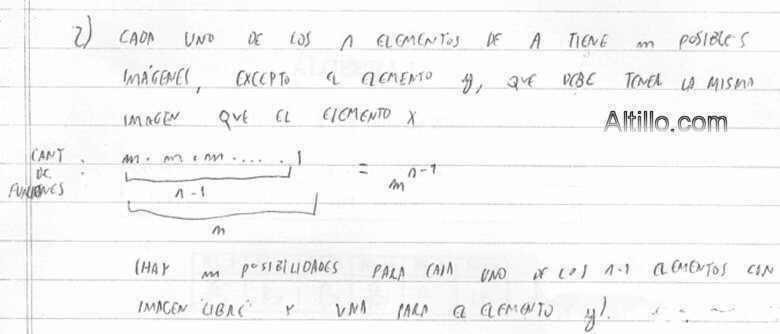 2) CADA UNO DE LOS n ELEMENTOS DE A TIENE m POSIBLES
IMÁGENES, EXCEPTO EL ELEMENTO y, QUE DEBE TENER LA MISMA
IMAGEN QUE EL ELEMENTO X
Altillo.com
CANT DE FUNCIONES: m . m . m . .... . 1 = m^{n-1}
n-1
m
(HAY m POSIBILIDADES PARA CADA UNO DE LOS n-1 ELEMENTOS CON
IMAGEN "LIBRE" Y UNA PARA EL ELEMENTO y).